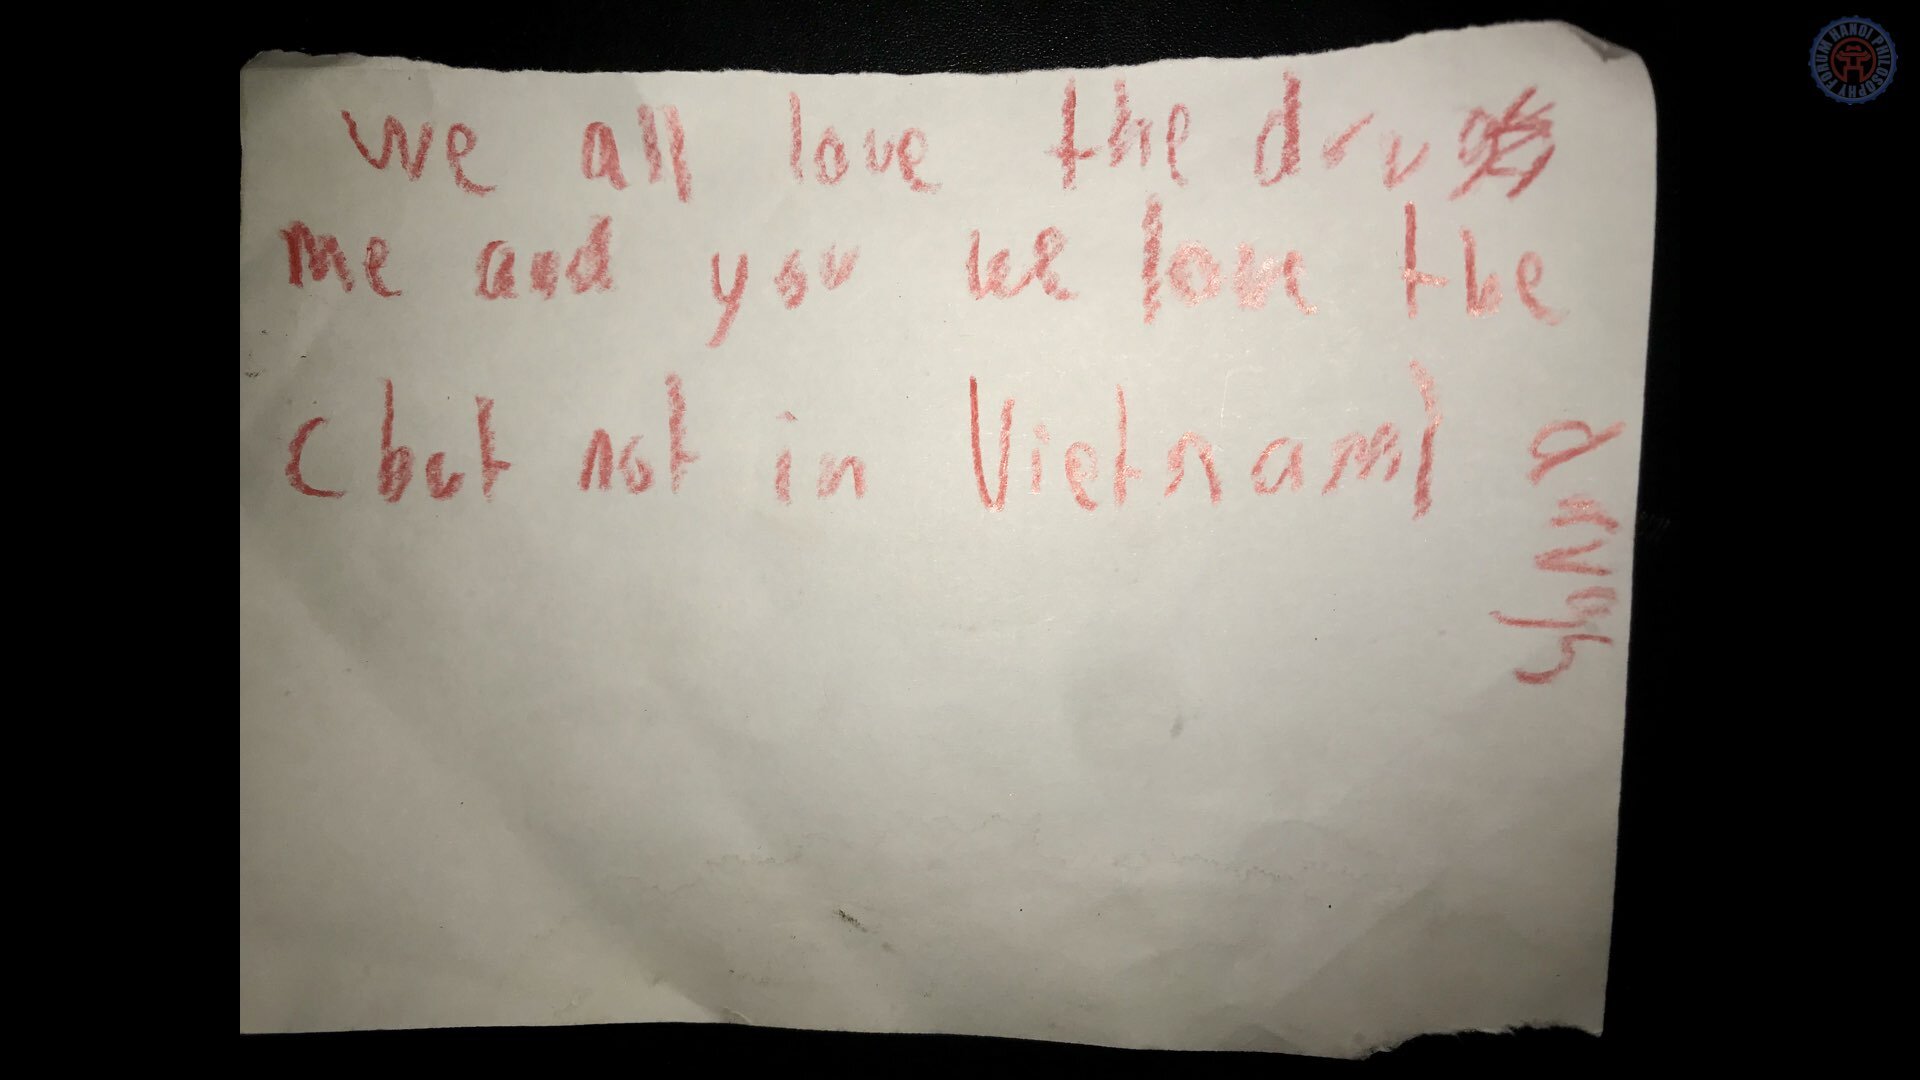 we all love the drugs
me and you we love the
drugs
(but not in Vietnam)
FORUM HANOI PHILOSOPHY